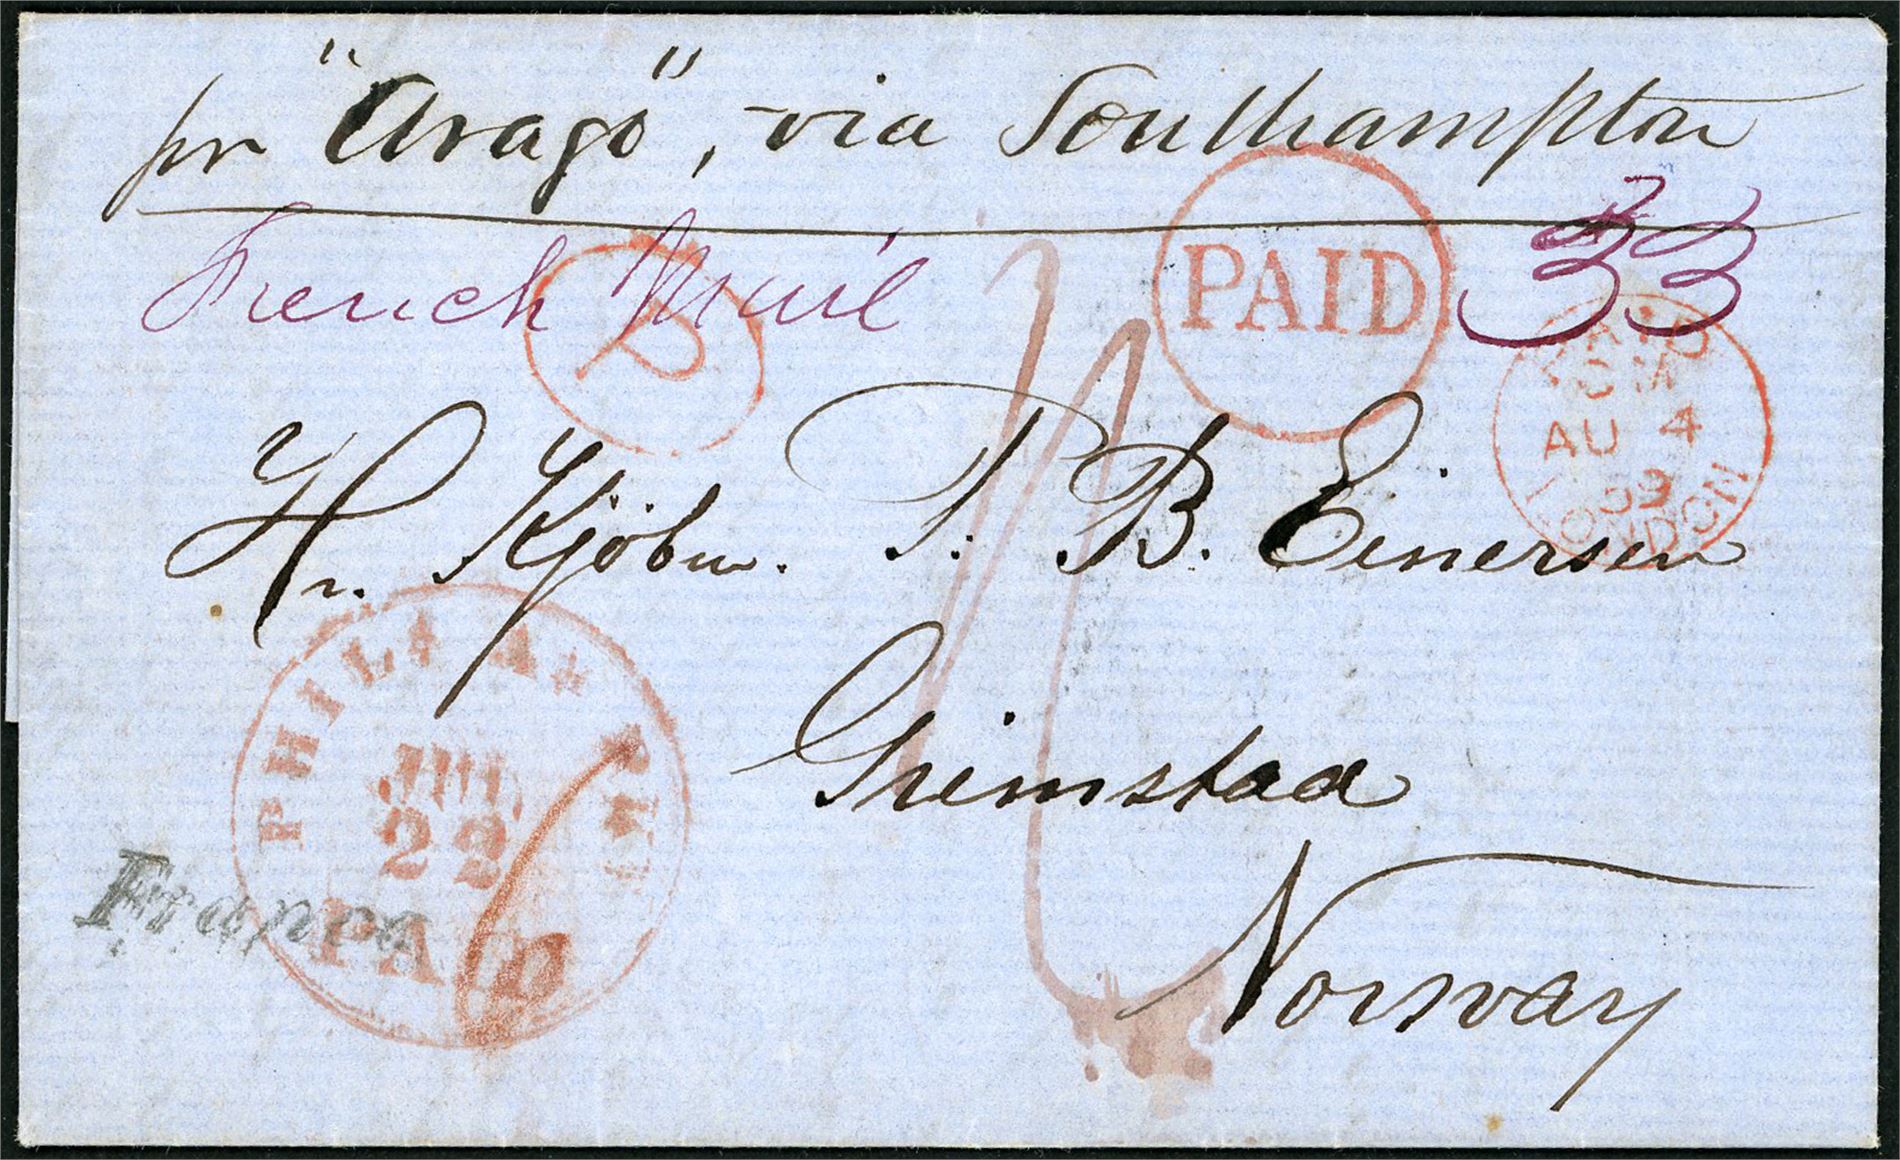 pr "Arago", via Southampton
French Mail
P
PAID
33
PAID
AU 4
59
LONDON
Hr. Kjöbm. P. B. Einersen
Grimstad
Norway
PHILADA
JUL
22
PAID
Franco